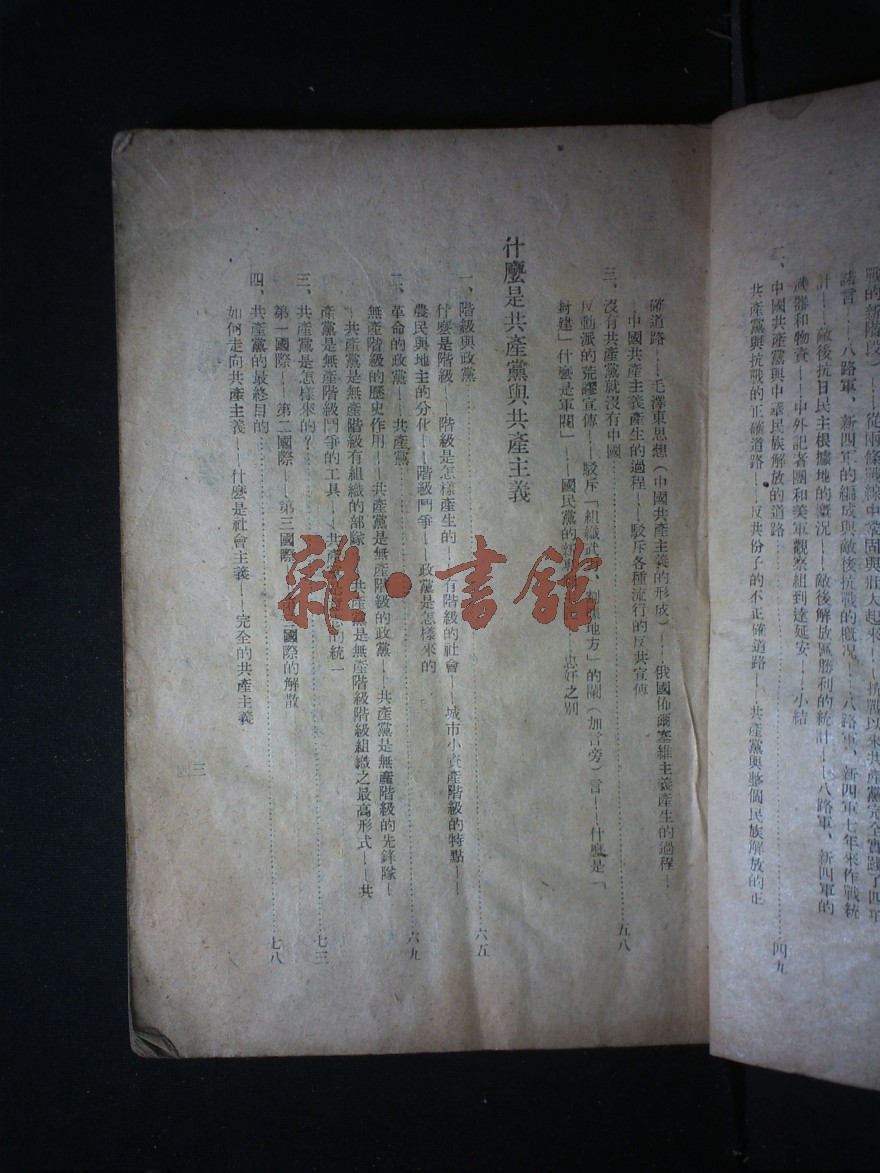 戰的新階段）——從兩條戰線中鞏固與壯大起來——抗戰以來共產黨完全實踐了四年
諾言——八路軍、新四軍的編成與敵後抗戰的概况——八路軍、新四軍七年來作戰統
計——敵後抗日民主根據地的概况——敵後解放區勝利的統計——八路軍、新四軍的
武器和物資——中外記者團和美軍觀察組到達延安——小結
二、中國共產黨與中華民族解放的道路……四九
共產黨與抗戰的正確道路——反共份子的不正確道路——共產黨與整個民族解放的正
確道路——毛澤東思想（中國共產主義的形成）——俄國佈爾塞維主義產生的過程—
—中國共產主義產生的過程——駁斥各種流行的反共宣傳
三、沒有共產黨就沒有中國……五八
反動派的荒謬宣傳——駁斥「組織武力、割據地方」的闌（加言旁）言——什麼是「
封建」什麼是軍閥」——國民黨的新忠奸之別
什麼是共產黨與共產主義
一、階級與政黨……六五
什麼是階級——階級是怎樣產生的——有階級的社會——城市小資產階級的特點——
農民與地主的分化——階級鬥爭——政黨是怎樣來的
二、革命的政黨——共產黨……六九
無產階級的歷史作用——共產黨是無產階級的政黨——共產黨是無產階級的先鋒隊—
—共產黨是無產階級有組織的部隊——共產黨是無產階級階級組織之最高形式——共
產黨是無產階級鬥爭的工具——共產黨是意志的統一
三、共產黨是怎樣來的？……七三
第一國際——第二國際——第三國際——第三國際的解散
四、共產黨的最終目的……七八
如何走向共產主義——什麼是社會主義——完全的共產主義
三
雜·書館